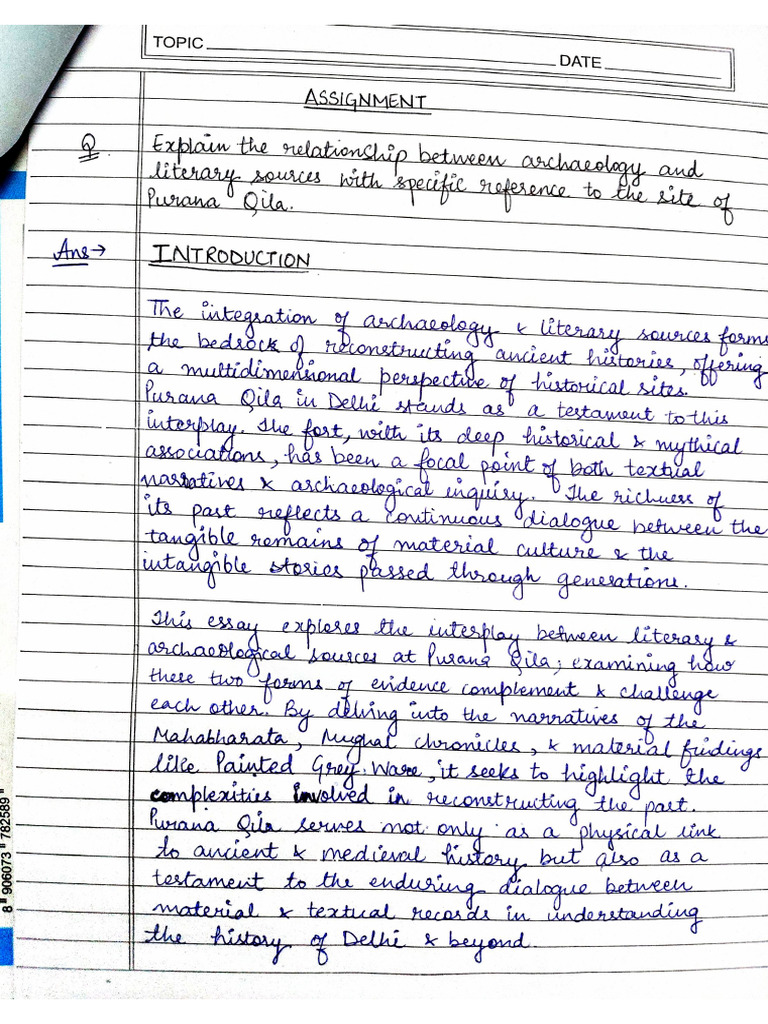 TOPIC
DATE
ASSIGNMENT
Q Explain the relationship between archaeology and
literary sources with specific reference to the site of
Purana Qila.
Ans→ INTRODUCTION
The integration of archaeology & literary sources forms
the bedrock of reconstructing ancient histories, offering
a multidimensional perspective of historical sites.
Purana Qila in Delhi stands as a testament to this
interplay. The fort, with its deep historical & mythical
associations, has been a focal point of both textual
narratives & archaeological inquiry. The richness of
its past reflects a continuous dialogue between the
tangible remains of material culture & the
intangible stories passed through generations.
This essay explores the interplay between literary &
archaeological sources at Purana Qila; examining how
these two forms of evidence complement & challenge
each other. By delving into the narratives of the
Mahabharata, Mughal chronicles, & material findings
like Painted Grey Ware, it seeks to highlight the
complexities involved in reconstructing the past.
Purana Qila serves not only as a physical link
to ancient & medieval history but also as a
testament to the enduring dialogue between
material & textual records in understanding
the history of Delhi & beyond.
8 906073 782589